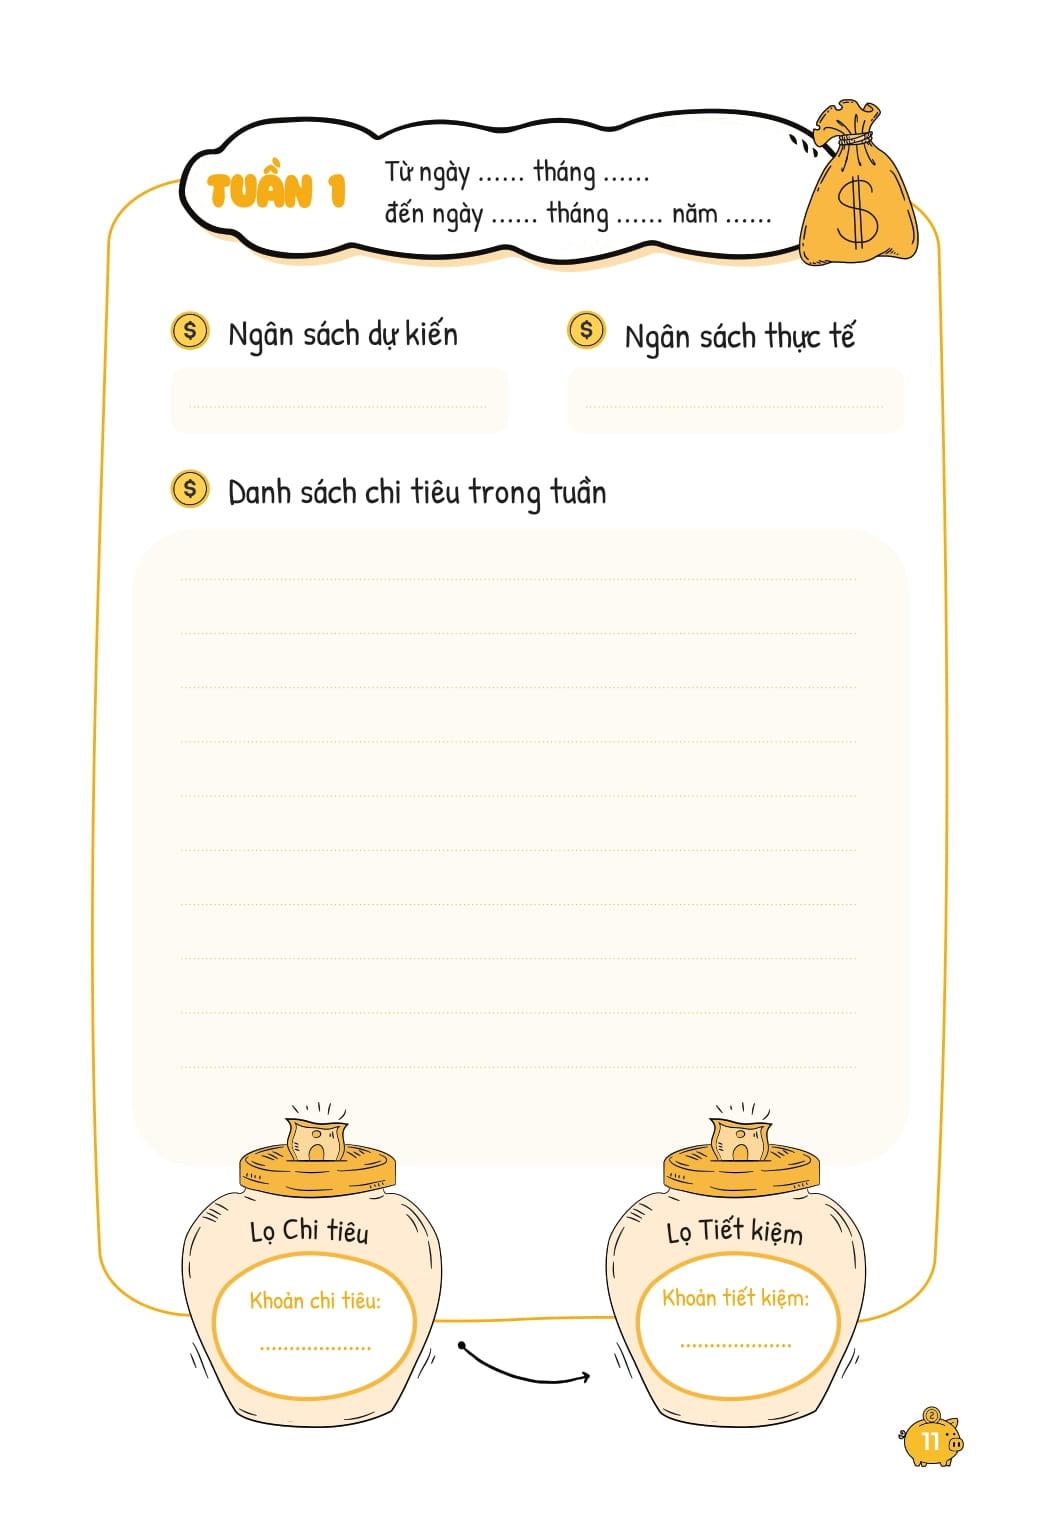 TUẦN 1
Từ ngày ...... tháng ......
đến ngày ...... tháng ...... năm ......
$
$ Ngân sách dự kiến
$ Ngân sách thực tế
$ Danh sách chi tiêu trong tuần
Lọ Chi tiêu
Khoản chi tiêu:
...................
Lọ Tiết kiệm
Khoản tiết kiệm:
...................
11